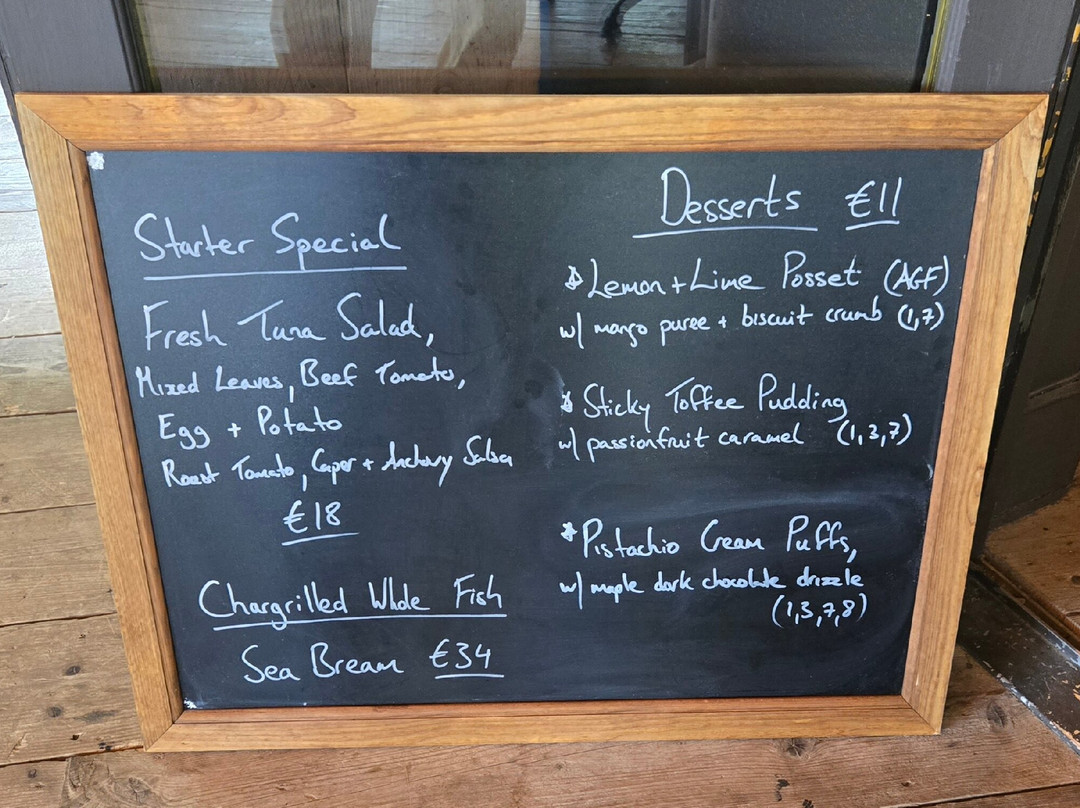 Starter Special
Fresh Tuna Salad,
Mixed Leaves, Beef Tomato,
Egg + Potato
Roast Tomato, Caper + Anchovy Salsa
€18
Chargrilled Whole Fish
Sea Bream €34
Desserts €11
*Lemon + Lime Posset (AGF)
w/ mango puree + biscuit crumb (1,7)
* Sticky Toffee Pudding
w/ passionfruit caramel (1,3,7)
*Pistachio Cream Puffs,
w/ maple dark chocolate drizzle
(1,3,7,8)